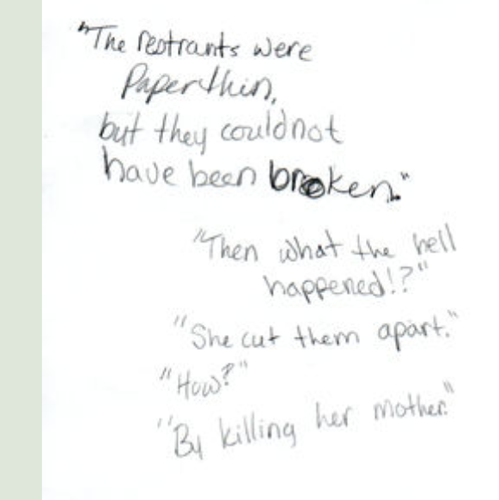 "The restrants were
Paperthin,
but they couldnot
have been broken."
"Then what the hell
happened!?"
"She cut them apart."
"How?"
"By killing her mother."